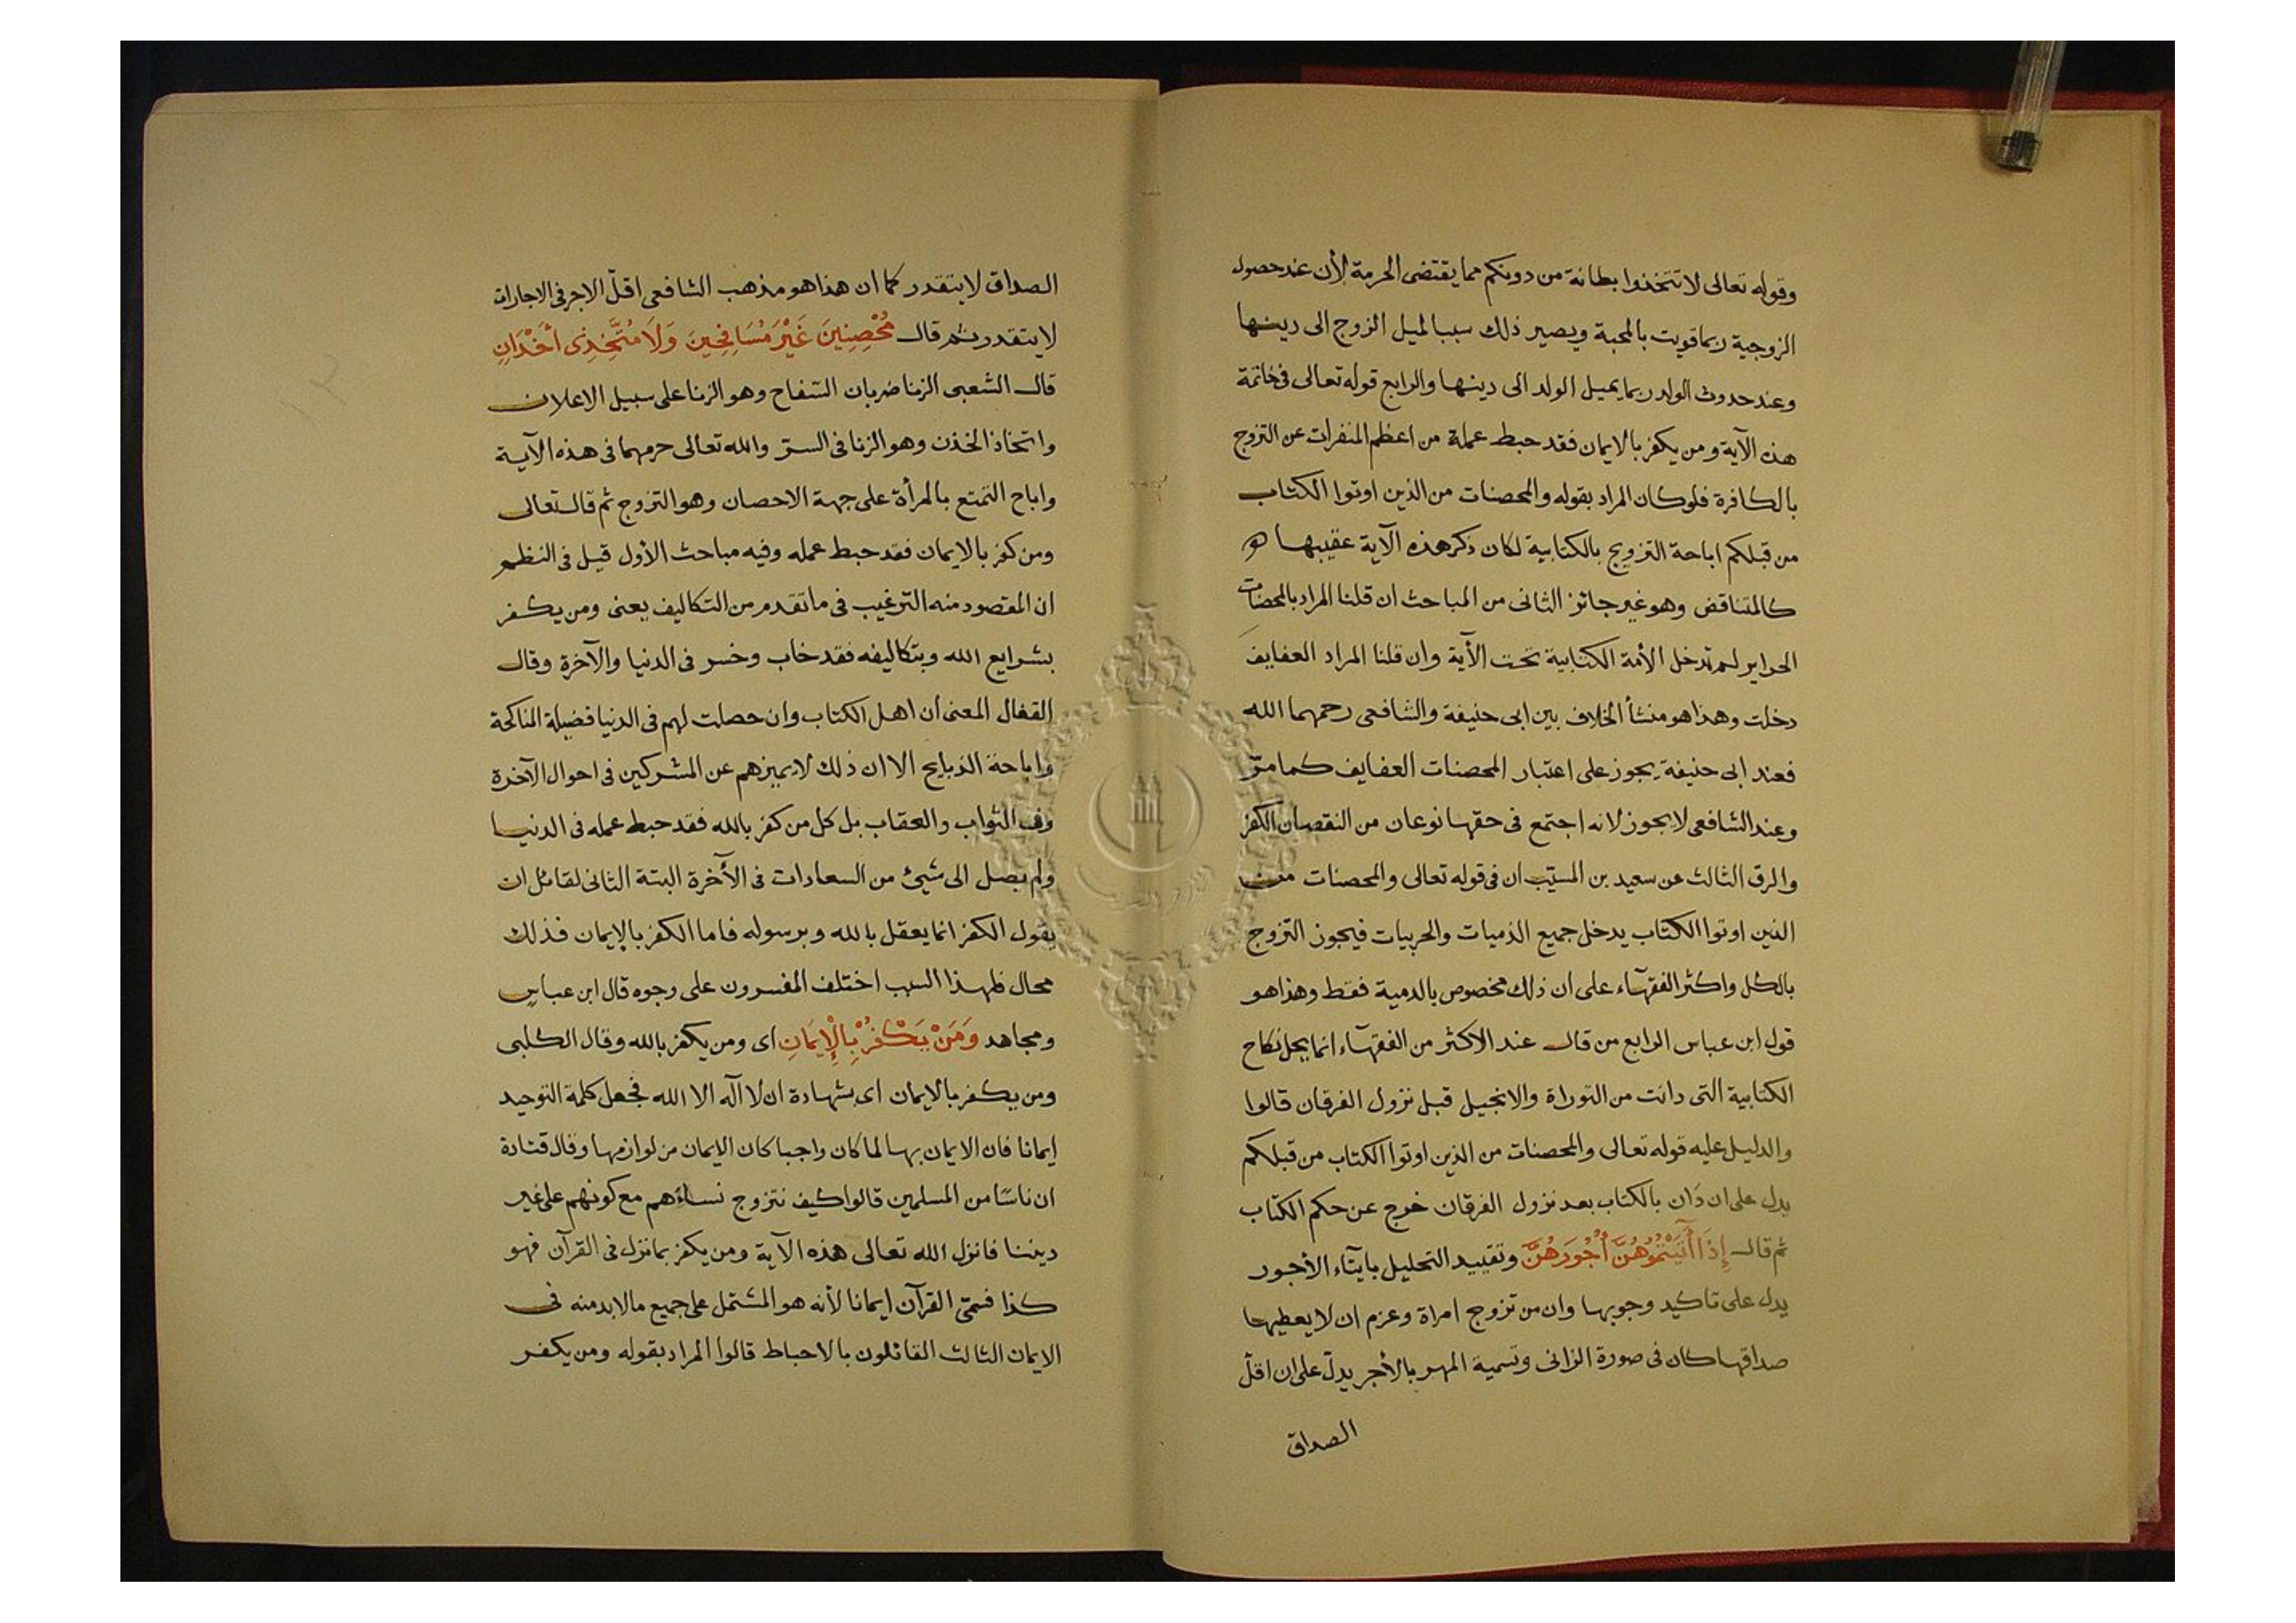 وقوله تعالى لا تتخذوا بطانة من دونكم مما يقتضى الحرمة لأن عند حصول
الزوجية ربما قويت بالمحبة ويصير ذلك سببا لميل الزوج الى دينها
وعند حدوث الولد ربما يميل الولد الى دينها والرابع قوله تعالى فى خاتمة
هذه الآية ومن يكفر بالايمان فقد حبط عمله من اعظم المنفرات عن التزوج
بالكافرة فلو كان المراد بقوله والمحصنات من الذين اوتوا الكتاب
من قبلكم اباحة التزويج بالكتابية لكان ذكر هذه الآية عقيبها
كالمتناقض وهو غير جائز الثانى من المباحث ان قلنا المراد بالمحصنات
الحراير لم تدخل الأمة الكتابية تحت الآية وان قلنا المراد العفايف
دخلت وهذا هو منشأ الخلاف بين ابى حنيفة والشافعى رحمهما الله
فعند ابى حنيفة يجوز على اعتبار المحصنات العفايف كما مرّ
وعند الشافعى لا يجوز لانه اجتمع فى حقها نوعان من النقصان الكفر
والرق الثالث عن سعيد بن المسيّب ان فى قوله تعالى والمحصنات من
الذين اوتوا الكتاب يدخل جميع الذميات والحربيات فيجوز التزوج
بالكل واكثر الفقهآء على ان ذلك مخصوص بالدمية فقط وهذا هو
قول ابن عباس الرابع من قال عند الاكثر من الفقهآء انما يحل نكاح
الكتابية التى دانت من التوراة والانجيل قبل نزول الفرقان قالوا
والدليل عليه قوله تعالى والمحصنات من الذين اوتوا الكتاب من قبلكم
يدل على ان دَان بالكتاب بعد نزول الفرقان خرج عن حكم الكتاب
ثم قال إِذَا أٓتَيْتُمُوهُنَّ أُجُورَهُنَّ وتقييد التحليل بايتآء الأجور
يدل على تاكيد وجوبها وان من تزوج امراة وعزم ان لا يعطيها
صداقها كان فى صورة الزانى وتسمية المهر بالأجر يدلّ على ان اقلّ
الصداق
الصداق لا يتقدر كما ان هذا هو مذهب الشافعى اقلّ الاجر فى الاجارات
لا يتقدر ثم قال مُحْصِنِينَ غَيْرَ مُسَافِحِينَ وَلَا مُتَّخِذِى أَخْدَانٍ
قال الشعبى الزنا ضربان السّفاح وهو الزنا على سبيل الاعلان
واتخاذ الخذن وهو الزنا فى السرّ والله تعالى حرمهما فى هذه الآية
واباح التمتع بالمرأة على جهة الاحصان وهو التزوج ثم قال تعالى
ومن كفر بالايمان فقد حبط عمله وفيه مباحث الأول قيل فى النظم
ان المقصود منه الترغيب فى ما تقدم من التكاليف يعنى ومن يكفر
بشرايع الله وبتكاليفه فقد خاب وخسر فى الدنيا والآخرة وقال
القفال المعنى أن اهل الكتاب وان حصلت لهم فى الدنيا فضيلة المناكحة
واباحة الذبايح الا ان ذلك لا يميزهم عن المشركين فى احوال الآخرة
وفى الثواب والعقاب بل كل من كفر بالله فقد حبط عمله فى الدنيا
ولم يصل الى شيئ من السعادات فى الآخرة البتة الثانى لقائل ان
يقول الكفر انما يعقل بالله وبرسوله فاما الكفر بالإيمان فذلك
محال فلهذا السبب اختلف المفسرون على وجوه قال ابن عباسٍ
ومجاهد وَمَنْ يَكْفُرْ بِالْإِيمَانِ اى ومن يكفر بالله وقال الكلبى
ومن يكفر بالايمان اى بشهادة ان لا اله الا الله فجعل كلمة التوحيد
إيمانا فان الايمان بها لما كان واجبا كان الايمان من لوازمها وقال قتادة
ان ناسًا من المسلمين قالوا كيف نتزوج نساءهم مع كونهم على غير
ديننا فانزل الله تعالى هذه الآية ومن يكفر بما نزل فى القرآن فهو
كذا فسمىّ القرآن إيمانا لأنه هو المشتمل على جميع ما لابد منه فى
الايمان الثالث القائلون بالاحباط قالوا المراد بقوله ومن يكفر